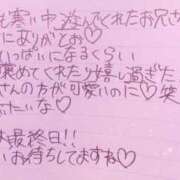 も寒い中遊んでくれたお兄さ
にありがとお♡
いっぱいになるくらい
褒めてくれたり嬉し過ぎた
さんの方が可愛いのに♡笑
たいな♡
は最終日!!
いお待ちしてますね♡